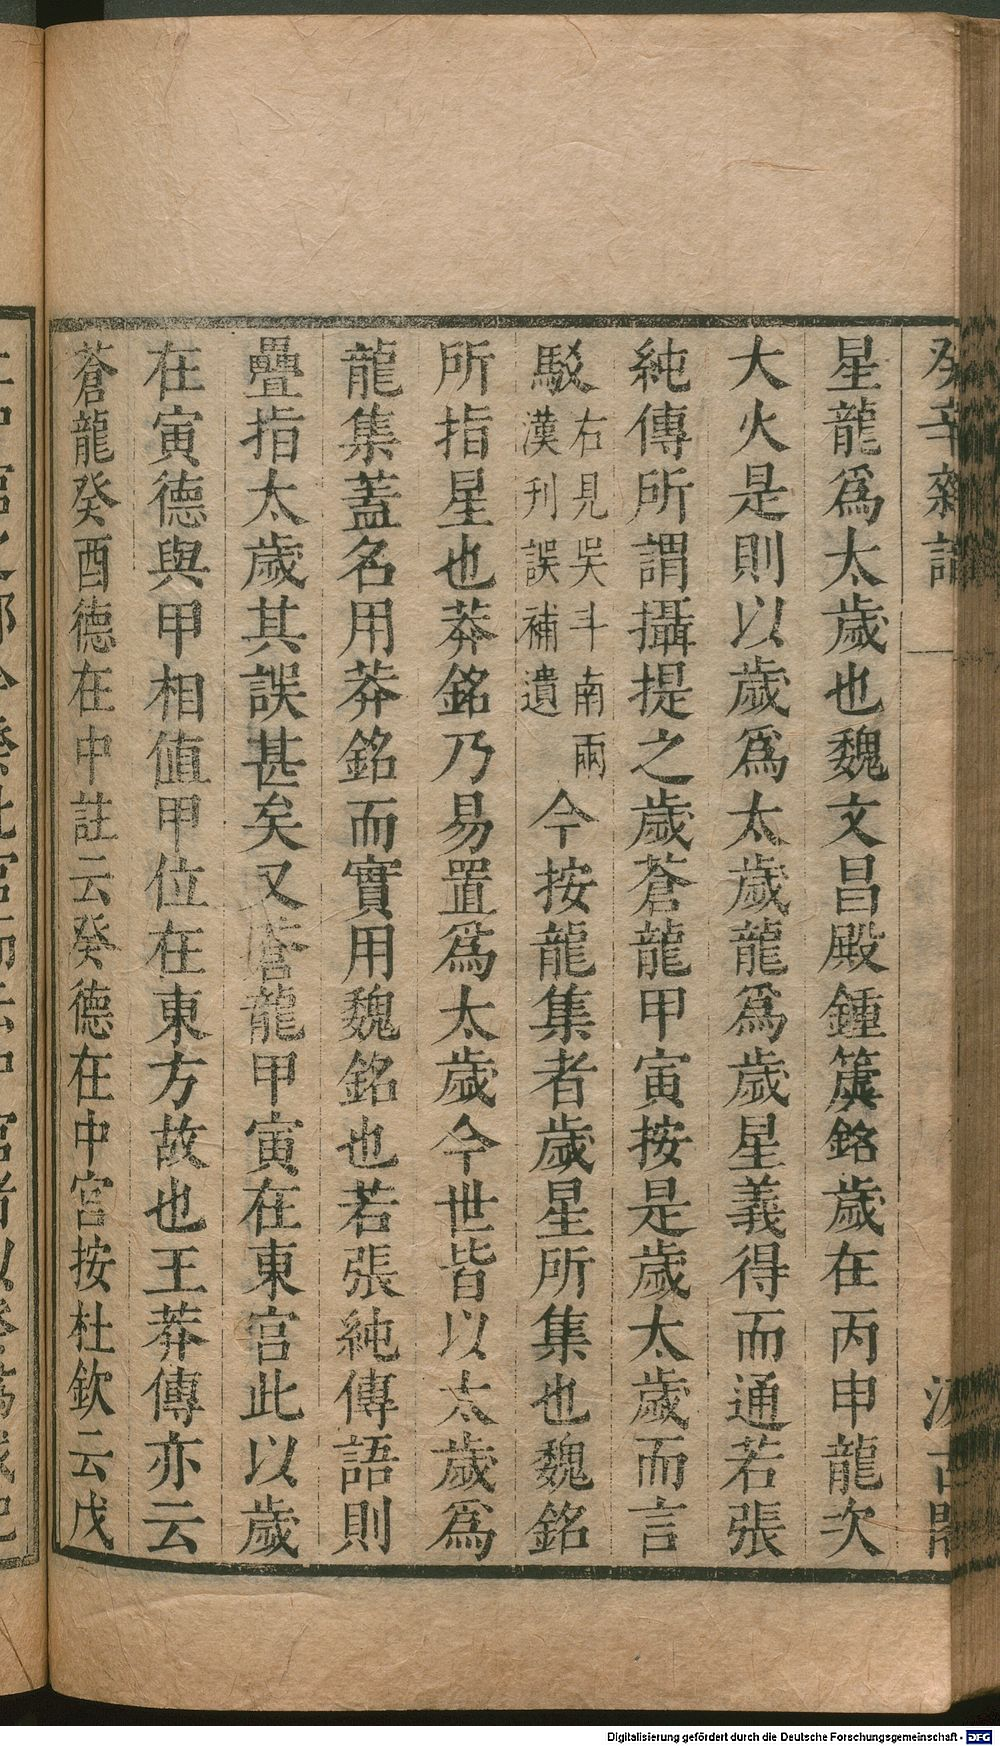 星龍爲太歲也魏文昌殿鍾簴銘歲在丙申龍次
大火是則以歲爲太歲龍爲歲星義得而通若張
純傳所謂攝提之歲蒼龍甲寅按是歲太歲而言
駁右見吳斗南兩漢刊誤補遺今按龍集者歲星所集也魏銘
所指星也莽銘乃易置爲太歲今世皆以太歲爲
龍集蓋名用莽銘而實用魏銘也若張純傳語則
疊指太歲其誤甚矣又蒼龍甲寅在東宫此以歲
在寅德與甲相値甲位在東方故也王莽傳亦云
蒼龍癸酉德在中註云癸德在中宫按杜欽云戊
Digitalisierung gefördert durch die Deutsche Forschungsgemeinschaft - DFG